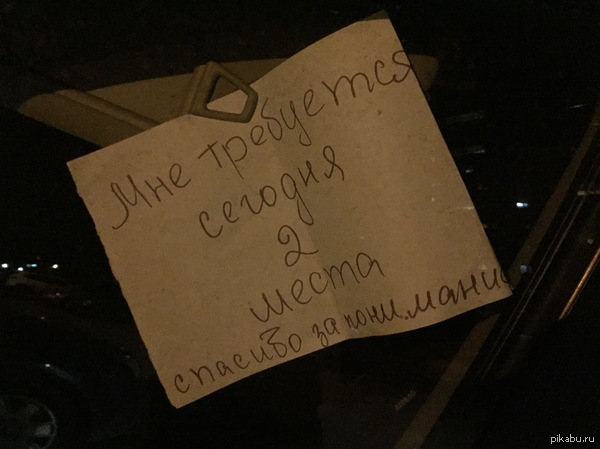 Мне требуется
сегодня
2
места
спасибо за понимани
pikabu.ru